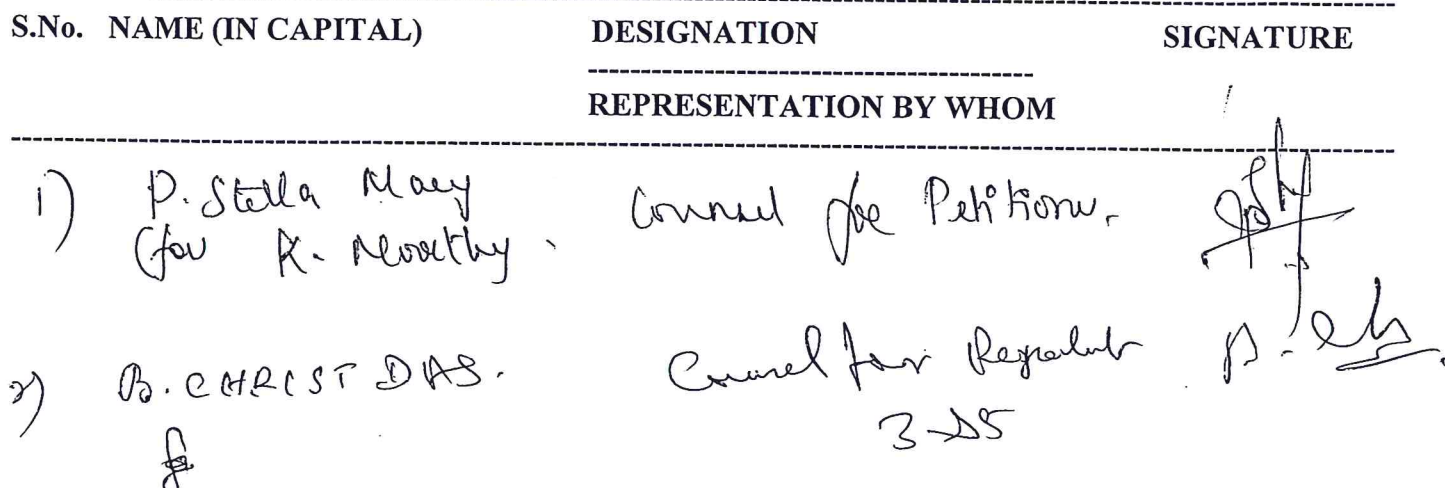 S.No. NAME (IN CAPITAL) DESIGNATION SIGNATURE
REPRESENTATION BY WHOM
1) P. Stella Mary Counsel for Petitioner.
(for K. Moorthy.
2) B. CHRIST DAS. Counsel for Respondent
3